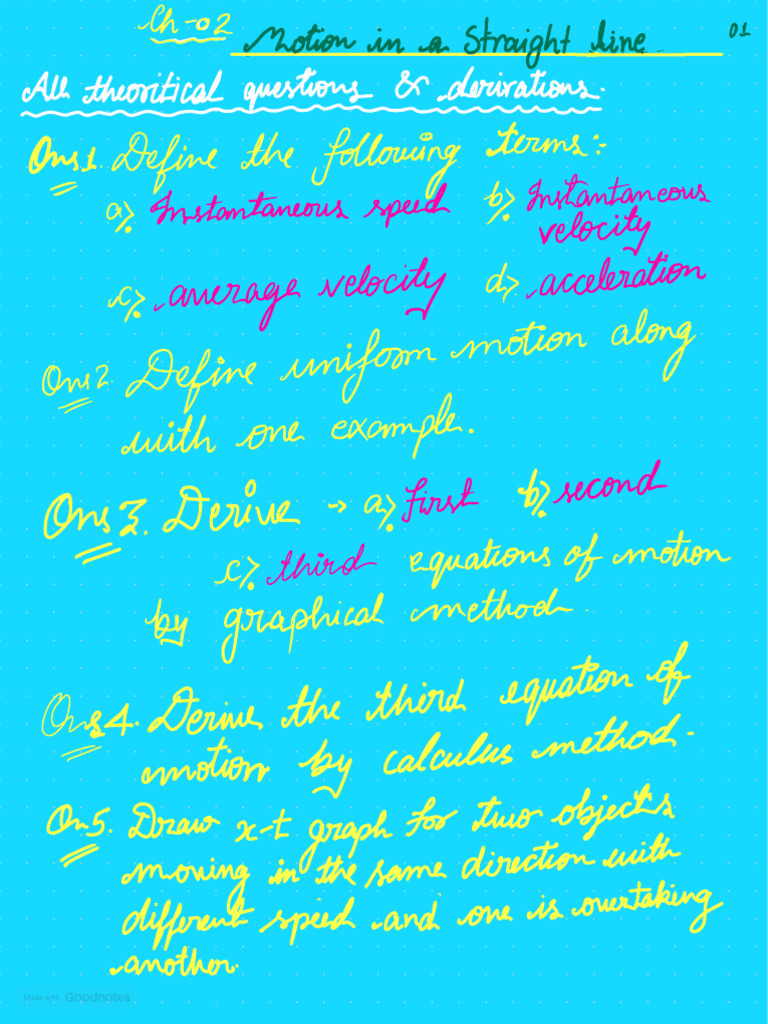 Ch-02 Motion in a Straight line 01
All theoritical questions & derivations.
Qns1. Define the following terms:-
a⟩. Instantaneous speed b⟩. Instantaneous
velocity
c⟩. average velocity d⟩. acceleration
Qns2. Define uniform motion along
with one example.
Qns3. Derive → a⟩. first b⟩. second
c⟩. third equations of motion
by graphical method.
Qns4. Derive the third equation of
motion by calculus method.
Qn5. Draw x-t graph for two objects
moving in the same direction with
different speed and one is overtaking
another.
Made with Goodnotes